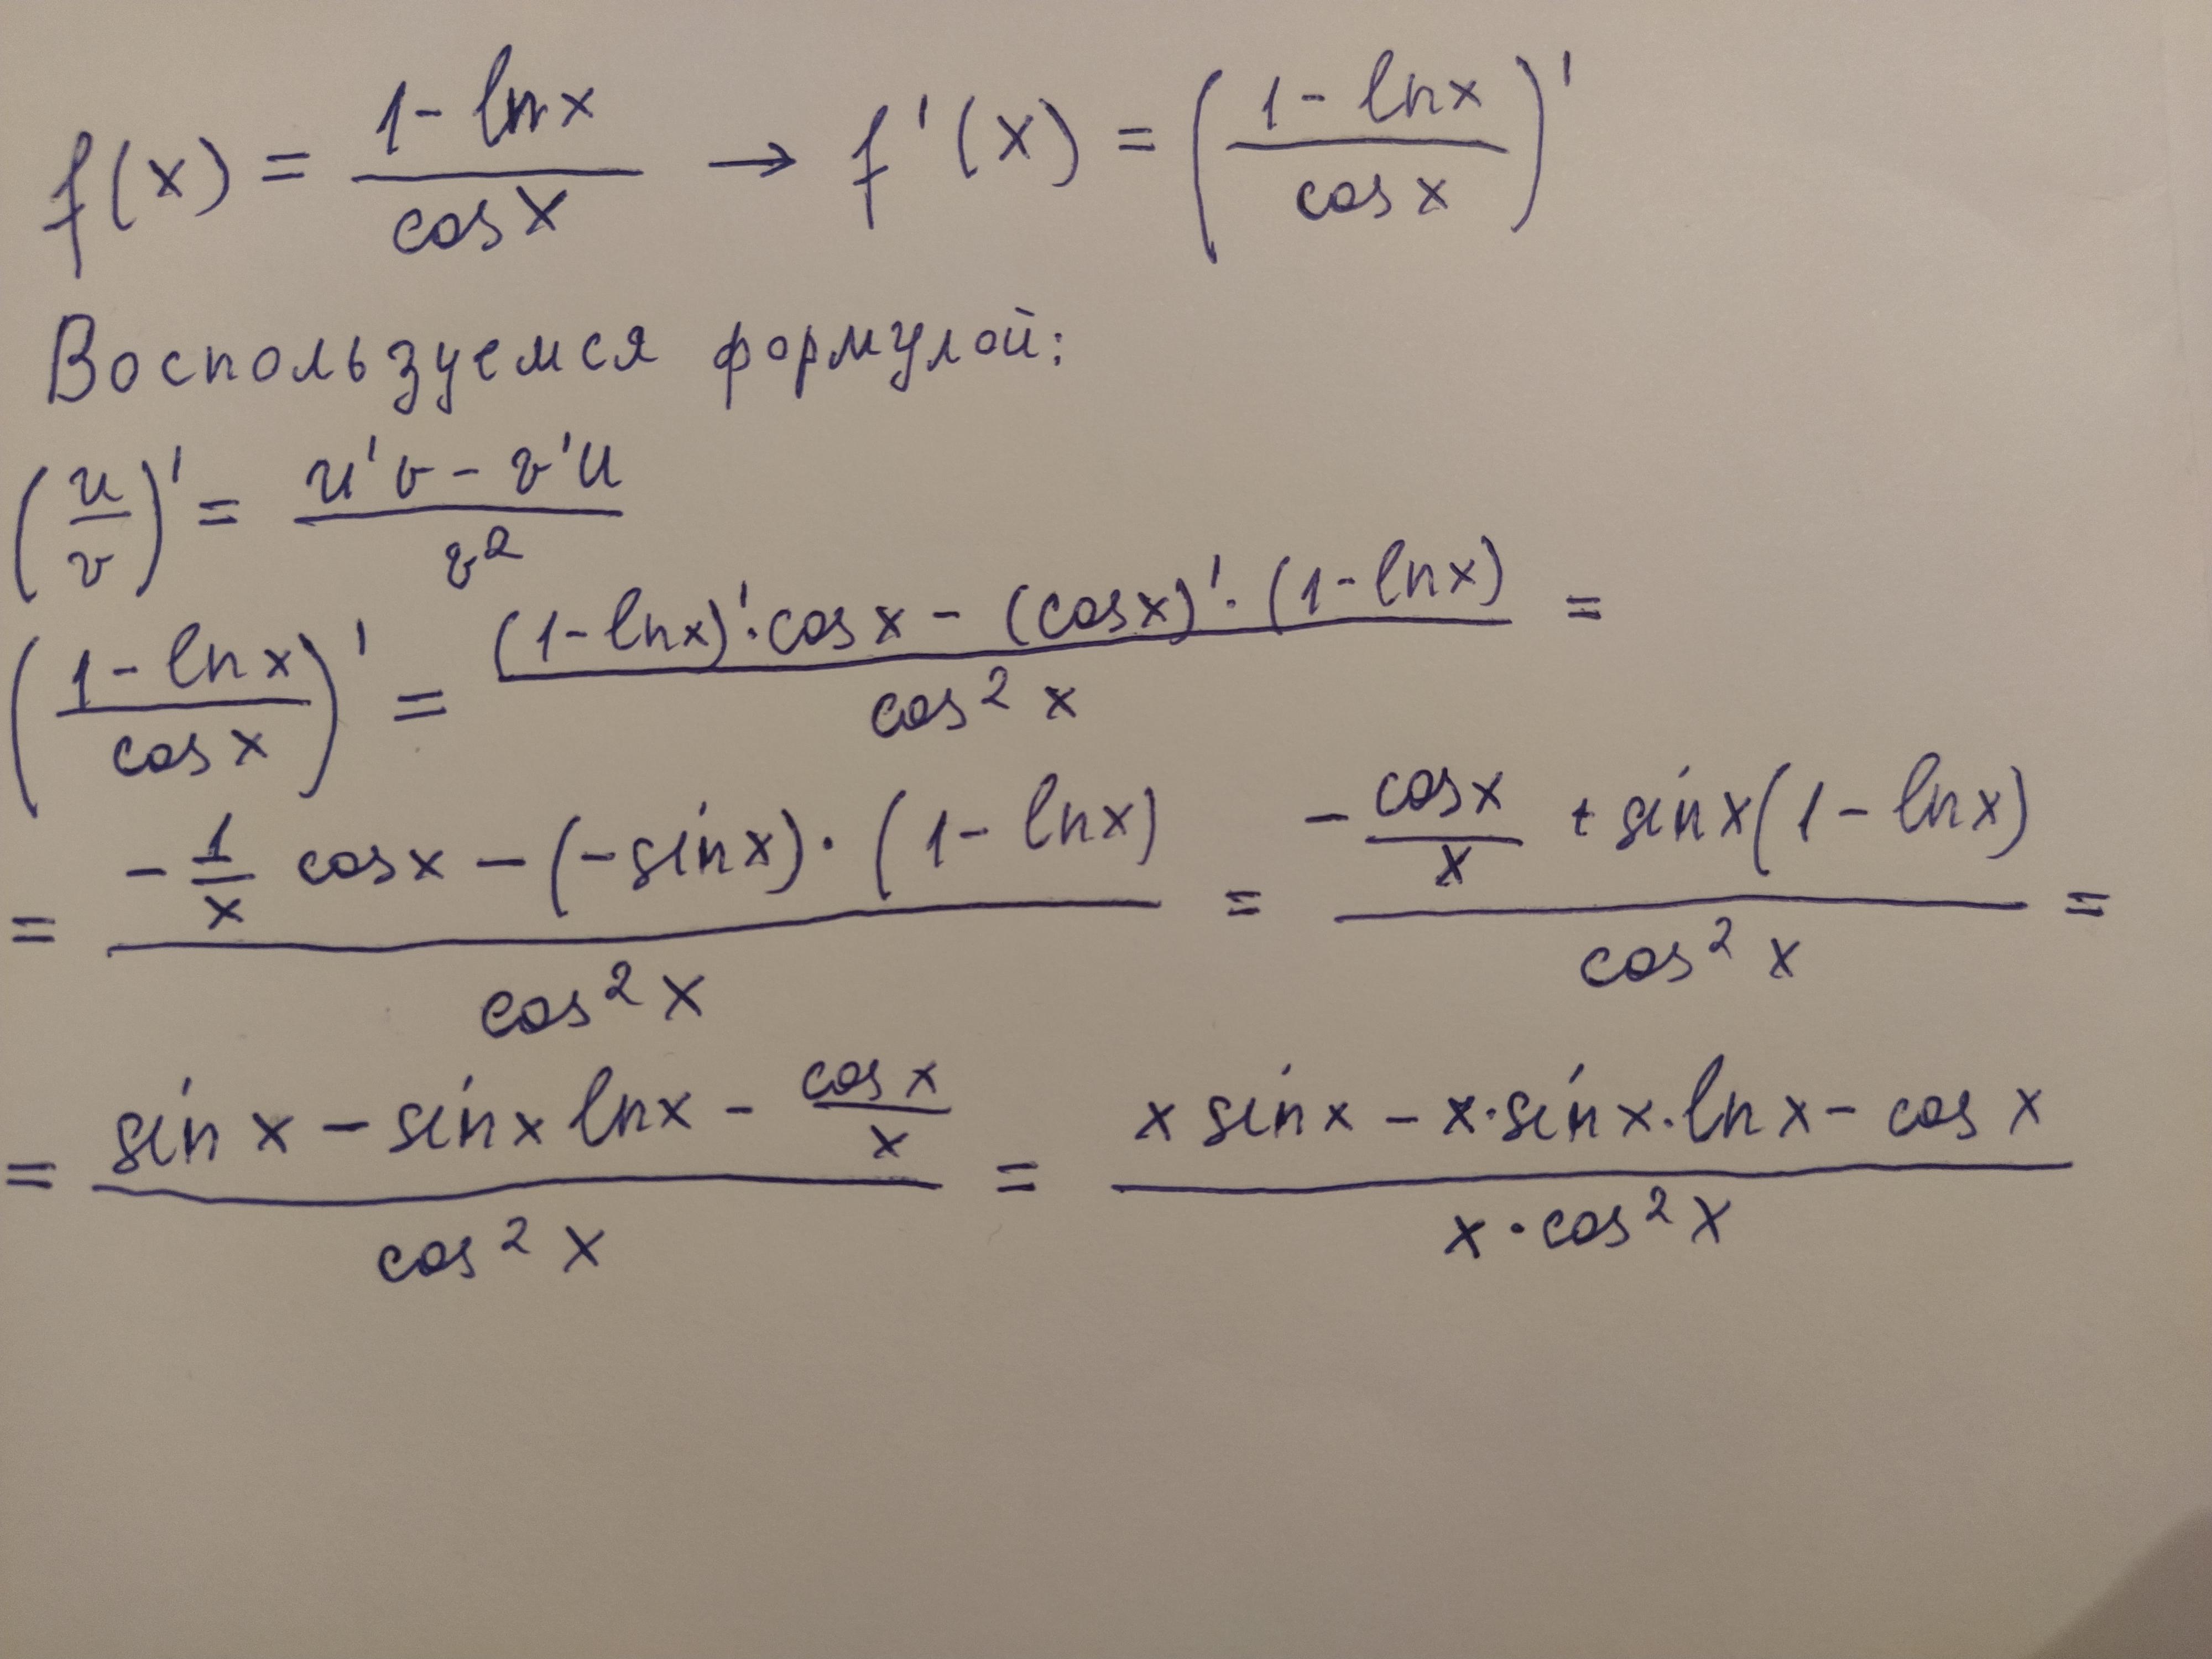 f(x) = (1 - ln x)/(cos x) → f'(x) = ((1 - ln x)/(cos x))'
Воспользуемся формулой:
(u/v)' = (u'v - v'u)/(v²)
((1 - ln x)/(cos x))' = ((1 - ln x)' · cos x - (cos x)' · (1 - ln x))/(cos² x) =
= (-(1/x) cos x - (-sin x) · (1 - ln x))/(cos² x) = (-(cos x)/x + sin x (1 - ln x))/(cos² x) =
= (sin x - sin x ln x - (cos x)/x)/(cos² x) = (x sin x - x · sin x · ln x - cos x)/(x · cos² x)